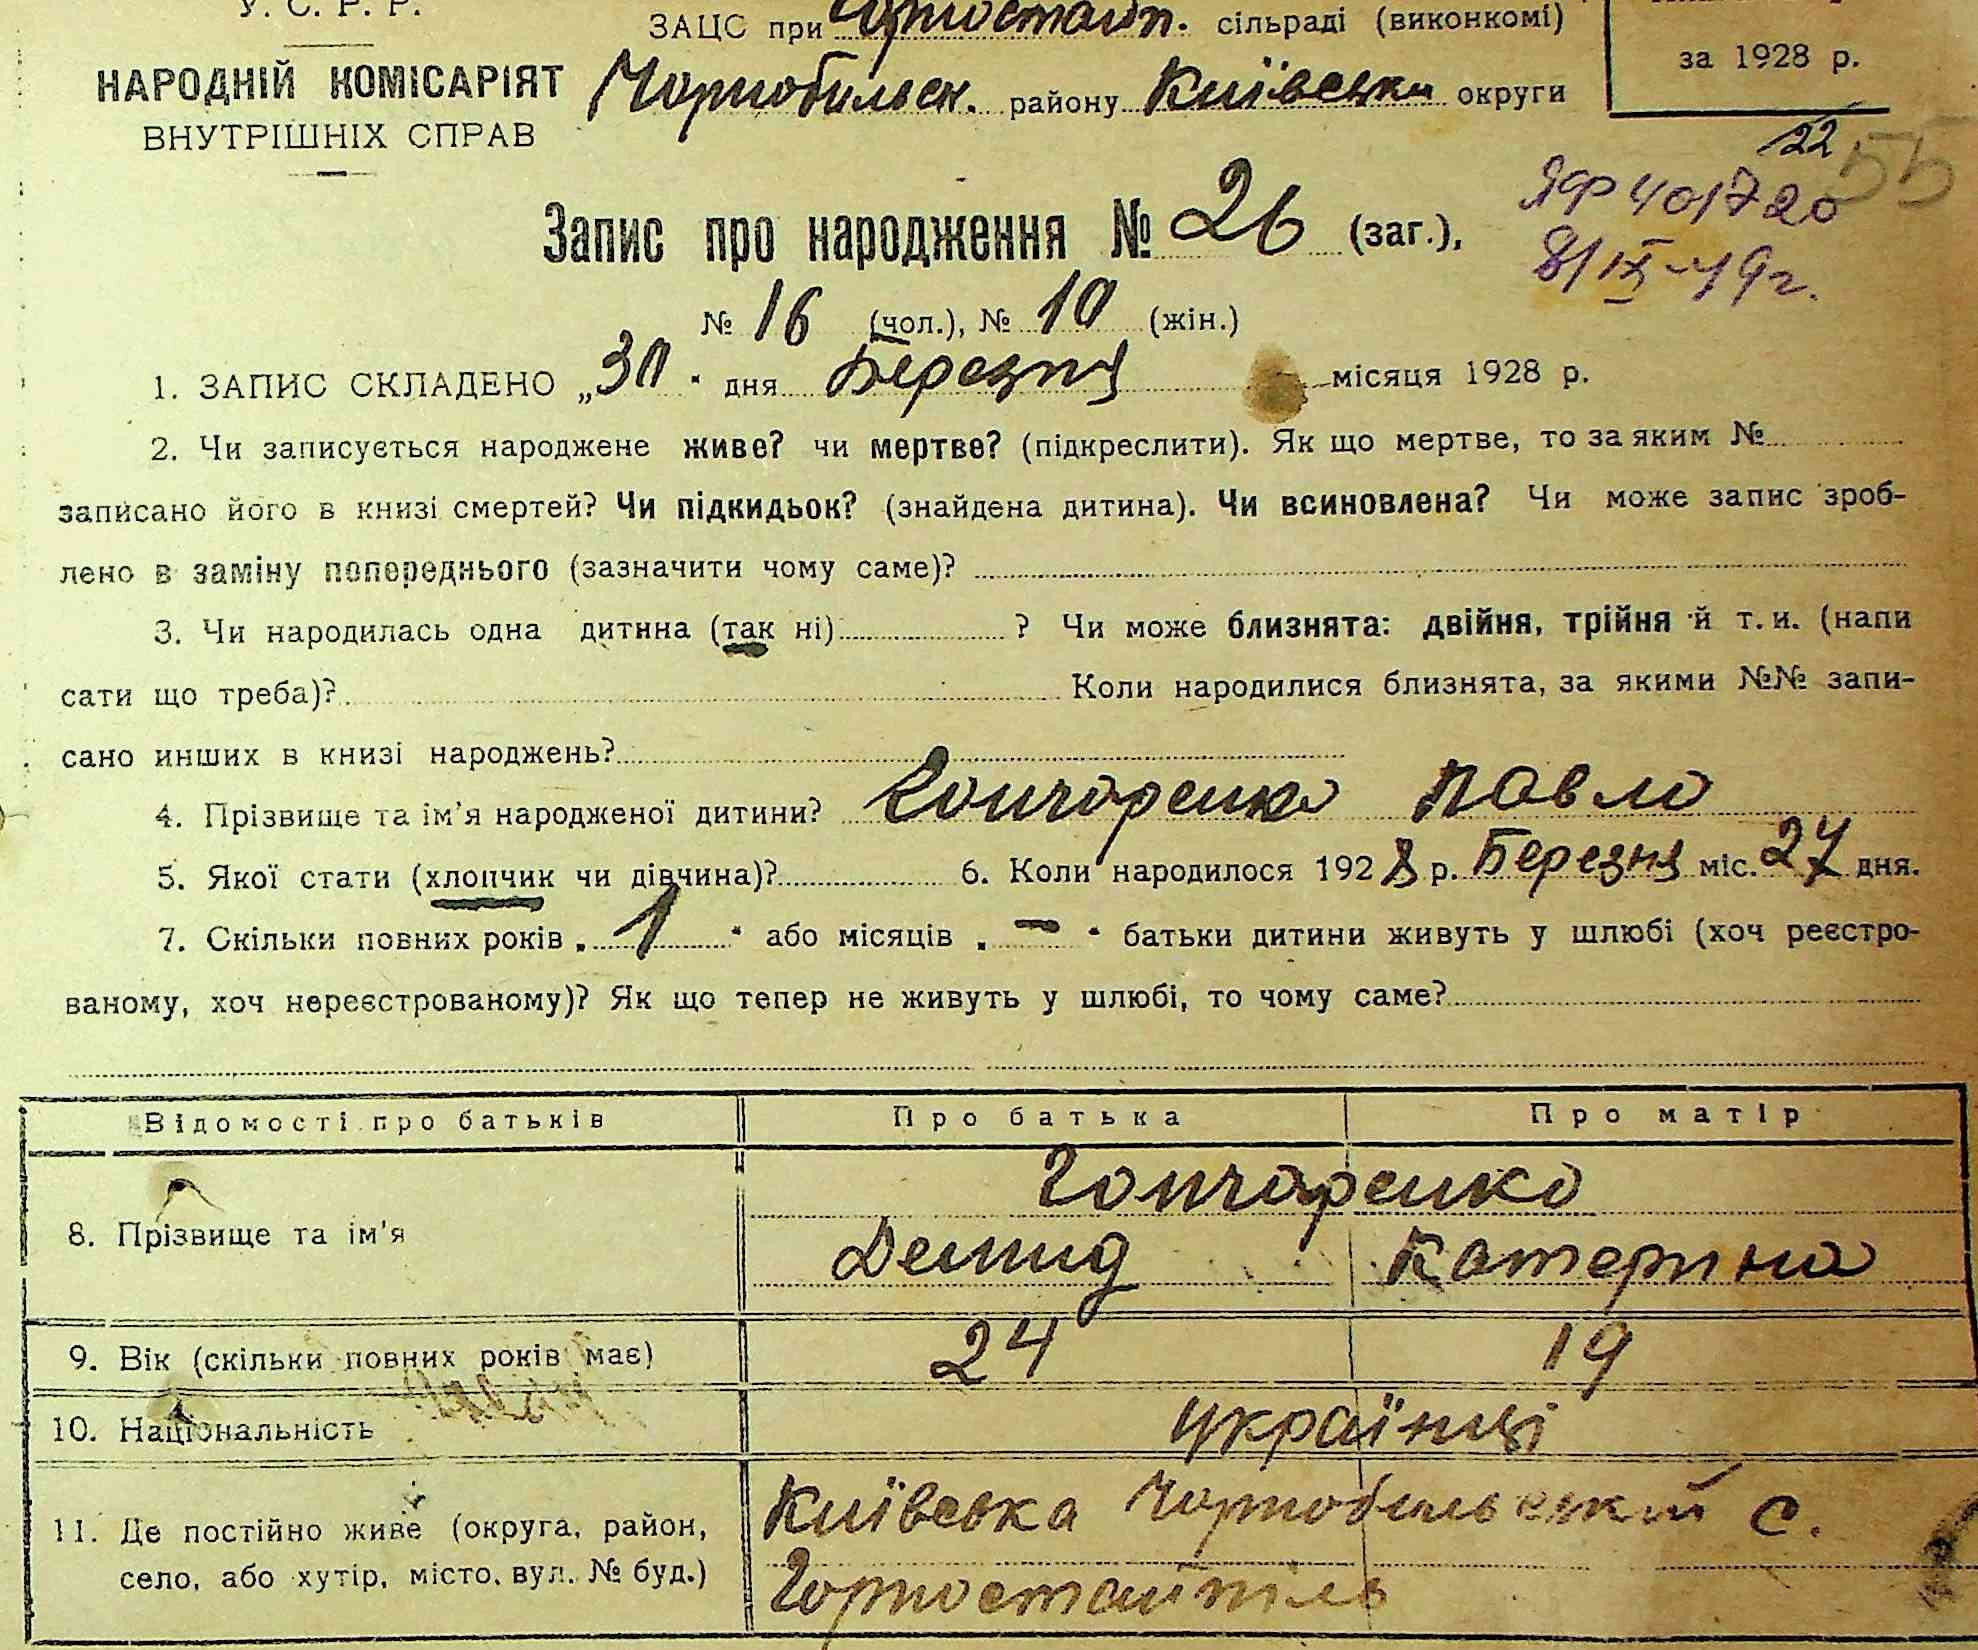 У. С. Р. Р.
ЗАЦС при Горностайп. сільраді (виконкомі)
за 1928 р.
НАРОДНІЙ КОМІСАРІЯТ
Чорнобильськ. району Київськи округи
ВНУТРІШНІХ СПРАВ
22
55
Запис про народження № 26 (заг.),
ЯФ 401720
8/IX-49г.
№ 16 (чол.), № 10 (жін.)
1. ЗАПИС СКЛАДЕНО „30" дня Березня місяця 1928 р.
2. Чи записується народжене живе? чи мертве? (підкреслити). Як що мертве, то за яким №
записано його в книзі смертей? Чи підкидьок? (знайдена дитина). Чи всиновлена? Чи може запис зроб-
лено в заміну попереднього (зазначити чому саме)?
3. Чи народилась одна дитина (так ні) ? Чи може близнята: двійня, трійня й т. и. (напи
сати що треба)? Коли народилися близнята, за якими №№ запи-
сано инших в книзі народжень?
4. Прізвище та ім'я народженої дитини? Гончаренко Павло
5. Якої стати (хлопчик чи дівчина)? 6. Коли народилося 1928 р. Березня міс. 27 дня.
7. Скільки повних років „ 1 " або місяців „ — " батьки дитини живуть у шлюбі (хоч реєстро-
ваному, хоч нереєстрованому)? Як що тепер не живуть у шлюбі, то чому саме?
Відомості про батьків Про батька Про матір
Гончаренко
8. Прізвище та ім'я Демид Катерина
9. Вік (скільки повних років має) 24 19
10. Національність українці
11. Де постійно живе (округа, район, Київська Чорнобильський с.
село, або хутір, місто, вул. № буд.) Горностайпіль